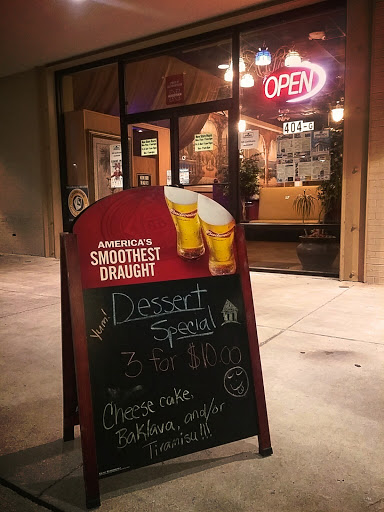 OPEN
404-G
AMERICA'S
SMOOTHEST
DRAUGHT
Yum!
Dessert
Special
3 for $10.00
Cheese cake,
Baklava, and/or
Tiramisu!!!